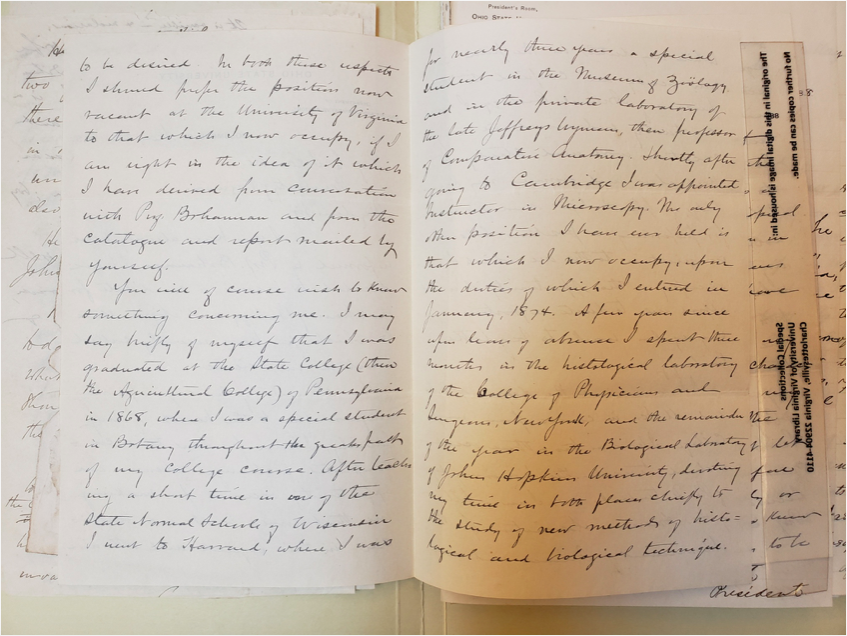 President's Room,
to be desired. In both these respects
I should prefer the position now
vacant at the University of Virginia
to that which I now occupy, if I
am right in the idea of it which
I have derived from conversation
with Prof. Bohannan and from the
catalogue and report mailed by
yourself.
You will of course wish to know
something concerning me. I may
say briefly of myself that I was
graduated at the State College (then
the Agricultural College) of Pennsylvania
in 1868, where I was a special student
in Botany throughout the greater part
of my College course. After teach-
ing a short time in one of the
State Normal Schools of Wisconsin
I went to Harvard, where I was
for nearly three years a special
student in the Museum of Zoölogy
and in the private laboratory of
the late Jeffreys Wyman, then professor
of Comparative Anatomy. Shortly after
going to Cambridge I was appointed
Instructor in Microscopy. The only
other position I have ever held is
that which I now occupy, upon
the duties of which I entered in
January, 1874. A few years since
upon leave of absence I spent three
months in the histological laboratory
of the College of Physicians and
Surgeons, New York, and the remainder
of the year in the Biological Laboratory
of Johns Hopkins University, devoting
my time in both places chiefly to
the study of new methods of histo=
logical and biological technique.
President
The original in this digital image is housed in:
No further copies can be made.
Special Collections
University of Virginia Library
Charlottesville, Virginia 22904-4110